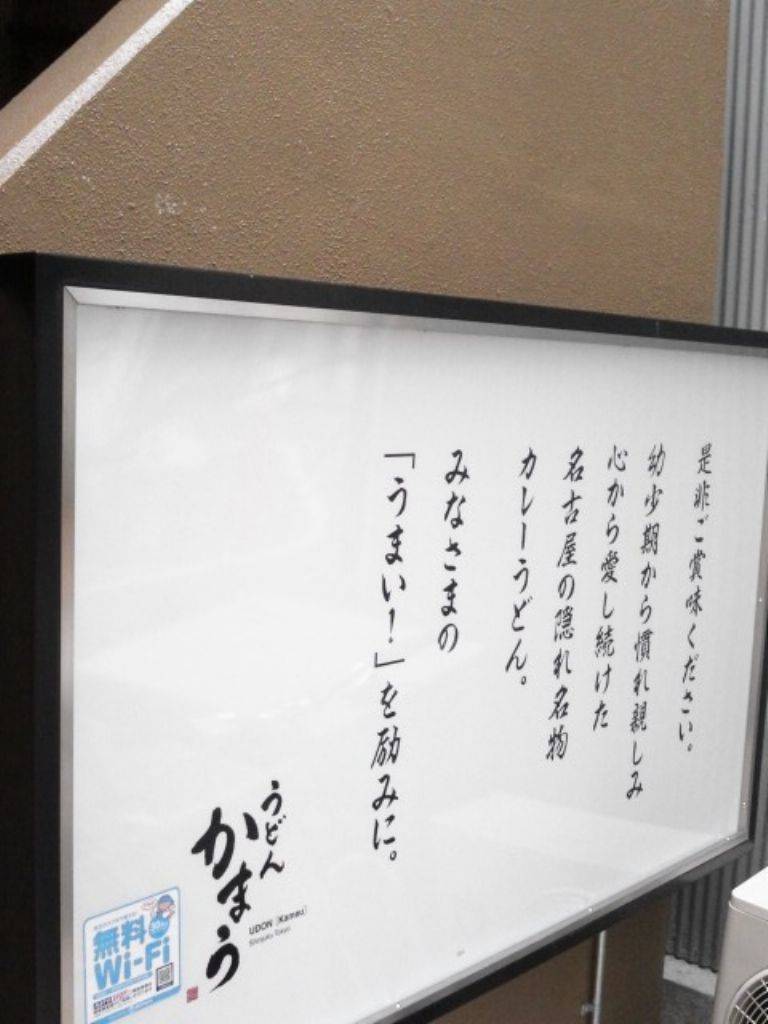 是非ご賞味ください。
幼少期から慣れ親しみ
心から愛し続けた
名古屋の隠れ名物
カレーうどん。
みなさまの
「うまい！」を励みに。
うどん
かまう
UDON [Kamau]
Shinjuku Tokyo
無料
Wi-Fi